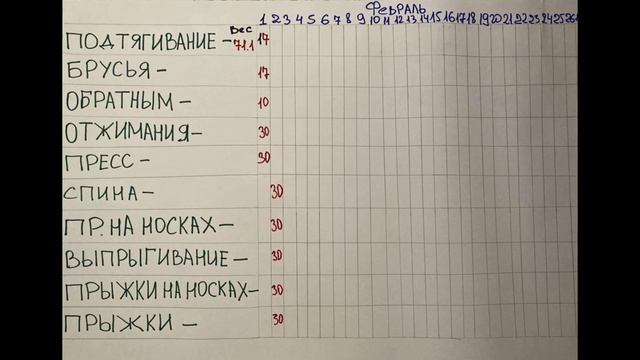 Февраль
Вес 1 2 3 4 5 6 7 8 9 10 11 12 13 14 15 16 17 18 19 20 21 22 23 24 25 26
ПОДТЯГИВАНИЕ – 71.1 17
БРУСЬЯ – 17
ОБРАТНЫМ – 10
ОТЖИМАНИЯ – 30
ПРЕСС – 30
СПИНА – 30
ПР. НА НОСКАХ – 30
ВЫПРЫГИВАНИЕ – 30
ПРЫЖКИ НА НОСКАХ – 30
ПРЫЖКИ – 30